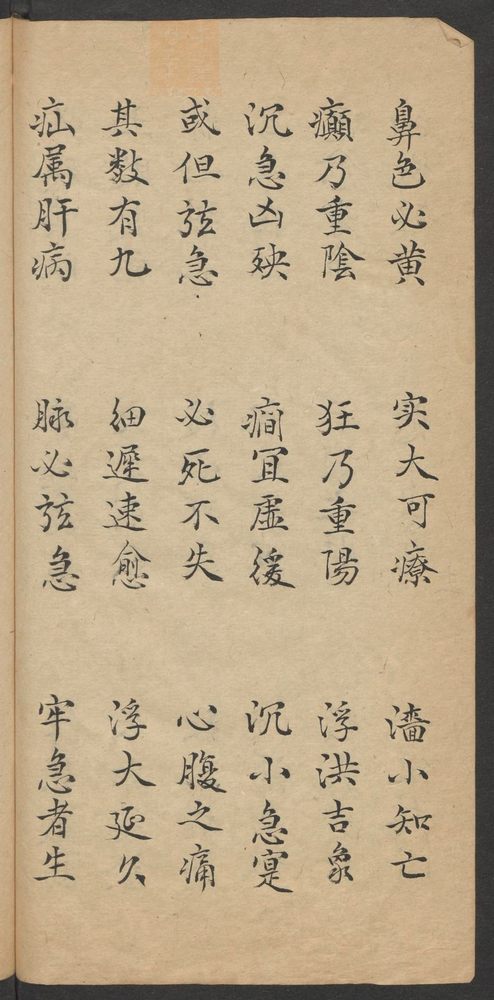 鼻色必黄 实大可療 濇小知亡
癲乃重陰 狂乃重陽 浮洪吉象
沉急凶殃 癇冝虛緩 沉小急寔
或但弦急 必死不失 心腹之痛
其数有九 细遲速愈 浮大延久
疝属肝病 脉必弦急 牢急者生